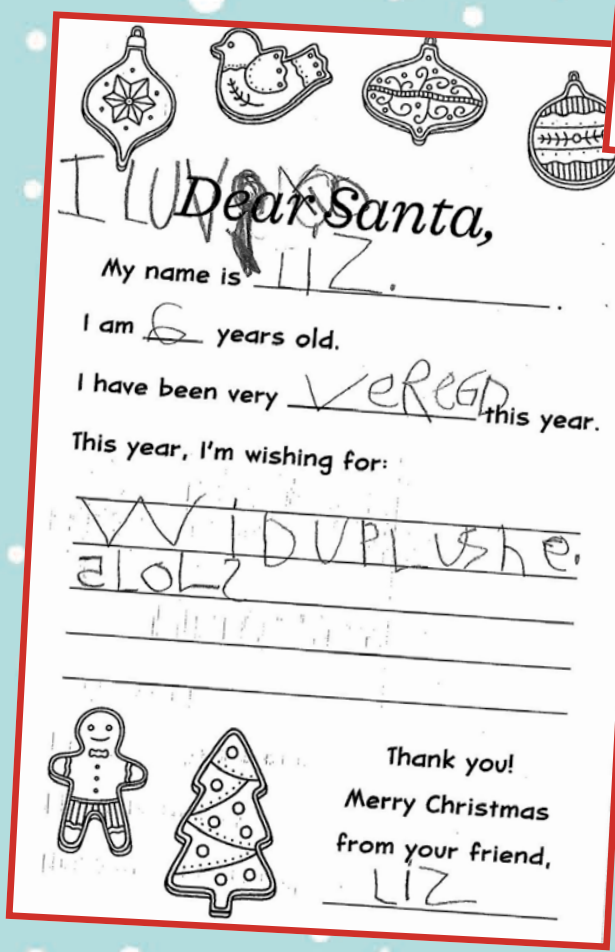 I LUV
Dear Santa,
My name is LIZ.
I am 6 years old.
I have been very VeReGD this year.
This year, I'm wishing for:
WIDUPLUShe.
aLOLS
Thank you!
Merry Christmas
from your friend,
LIZ